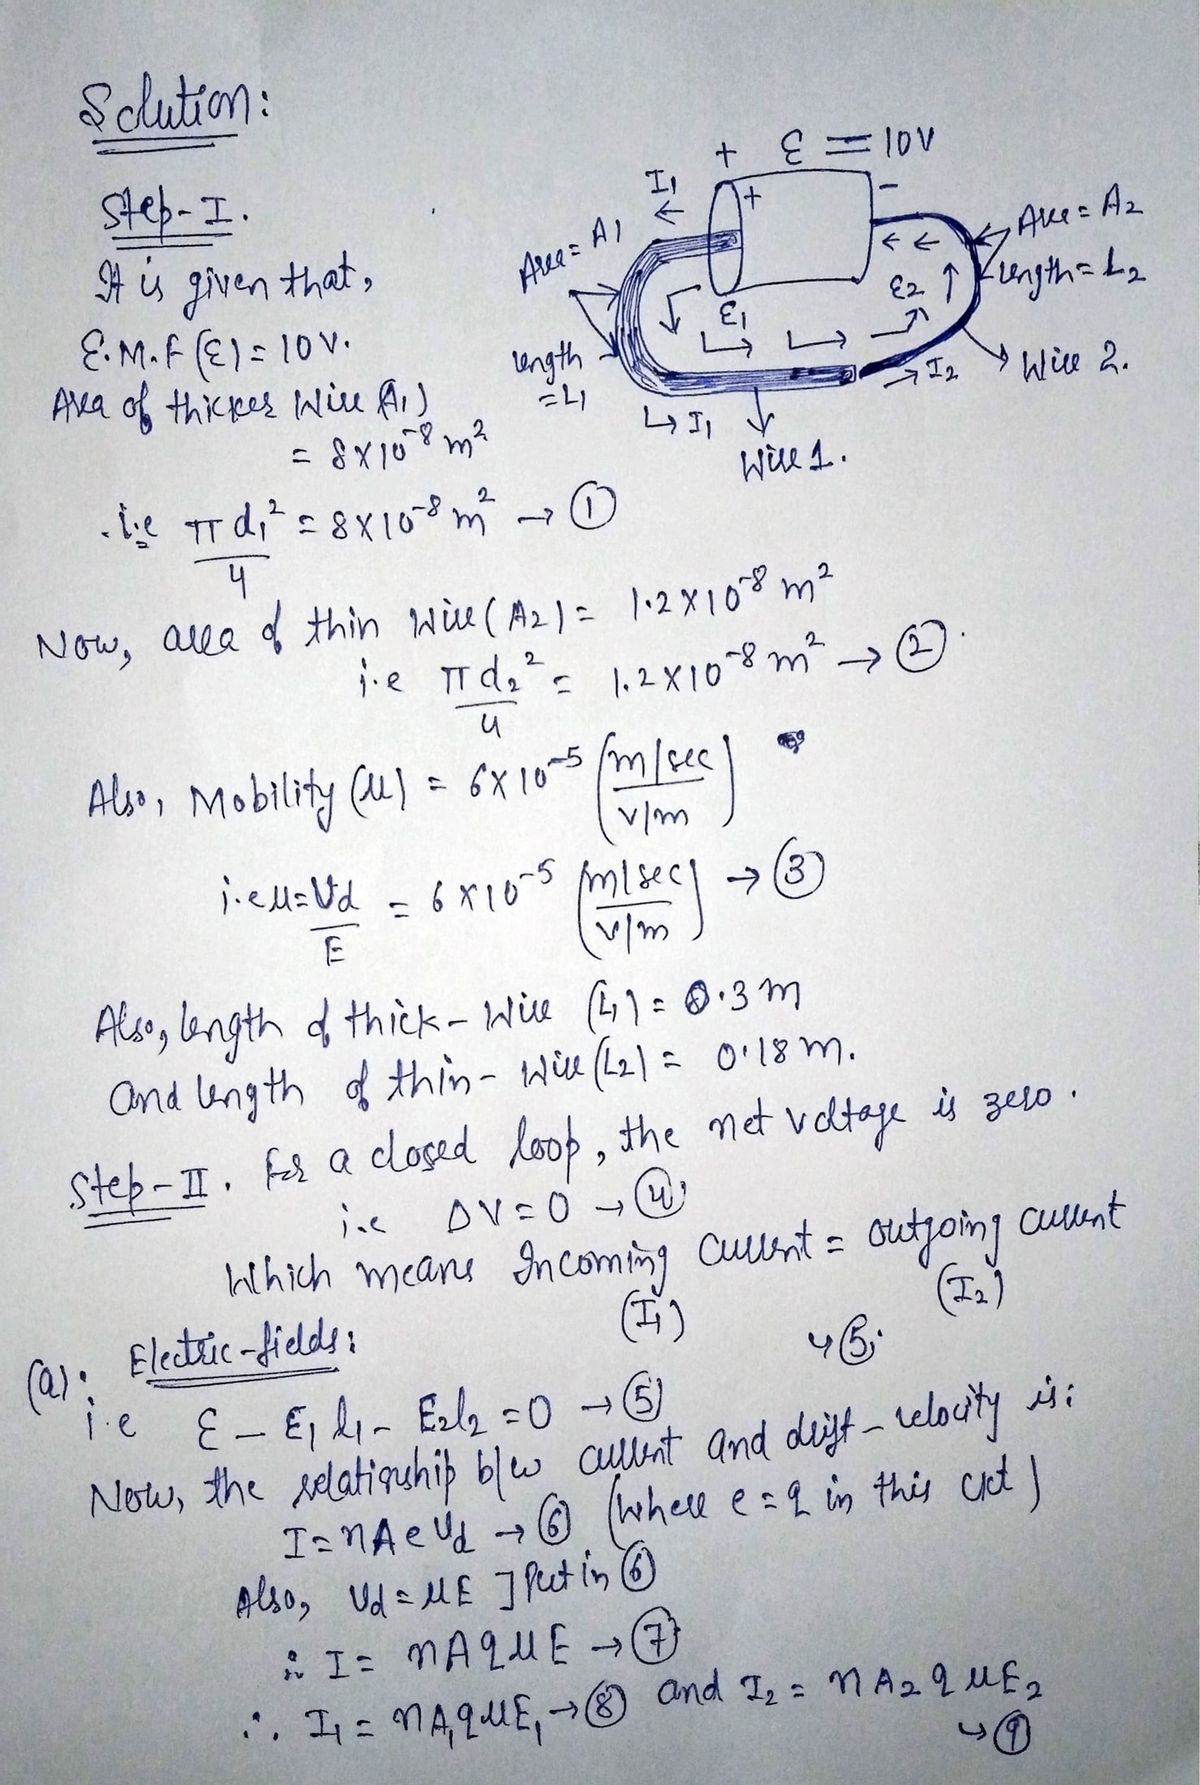 Solution:
Step-I.
It is given that,
E.M.F (ε) = 10V.
Area of thicker Wire (A₁)
= 8×10⁻⁸ m²
i.e πd₁²/4 = 8×10⁻⁸ m² → ①
+ ε = 10V
I₁ ←
+ -
Area = A₁
length = L₁
ε₁
ε₂
Area = A₂
Length = L₂
→ I₂
Wire 2.
↳ I₁
Wire 1.
Now, area of thin wire (A₂) = 1.2×10⁻⁸ m²
i.e πd₂²/4 = 1.2×10⁻⁸ m² → ②
Also, Mobility (μ) = 6×10⁻⁵ (m/sec / v/m)
i.e μ = Vd/E = 6×10⁻⁵ (m/sec / v/m) → ③
Also, length of thick-wire (L₁) = 0.3m
and length of thin-wire (L₂) = 0.18m.
Step-II. For a closed loop, the net voltage is zero.
i.e ΔV = 0 → ④
Which means Incoming current = outgoing current
(I₁) (I₂)
↳ ⑤
(a). Electric-fields:
i.e ε - E₁l₁ - E₂l₂ = 0 → ⑤
Now, the relationship b/w current and drift-velocity is:
I = nAeVd → ⑥ (where e = q in this ckt)
Also, Vd = μE ] Put in ⑥
∴ I = nAqμE → ⑦
∴ I₁ = nA₁qμE₁ → ⑧ and I₂ = nA₂qμE₂
↳ ⑨